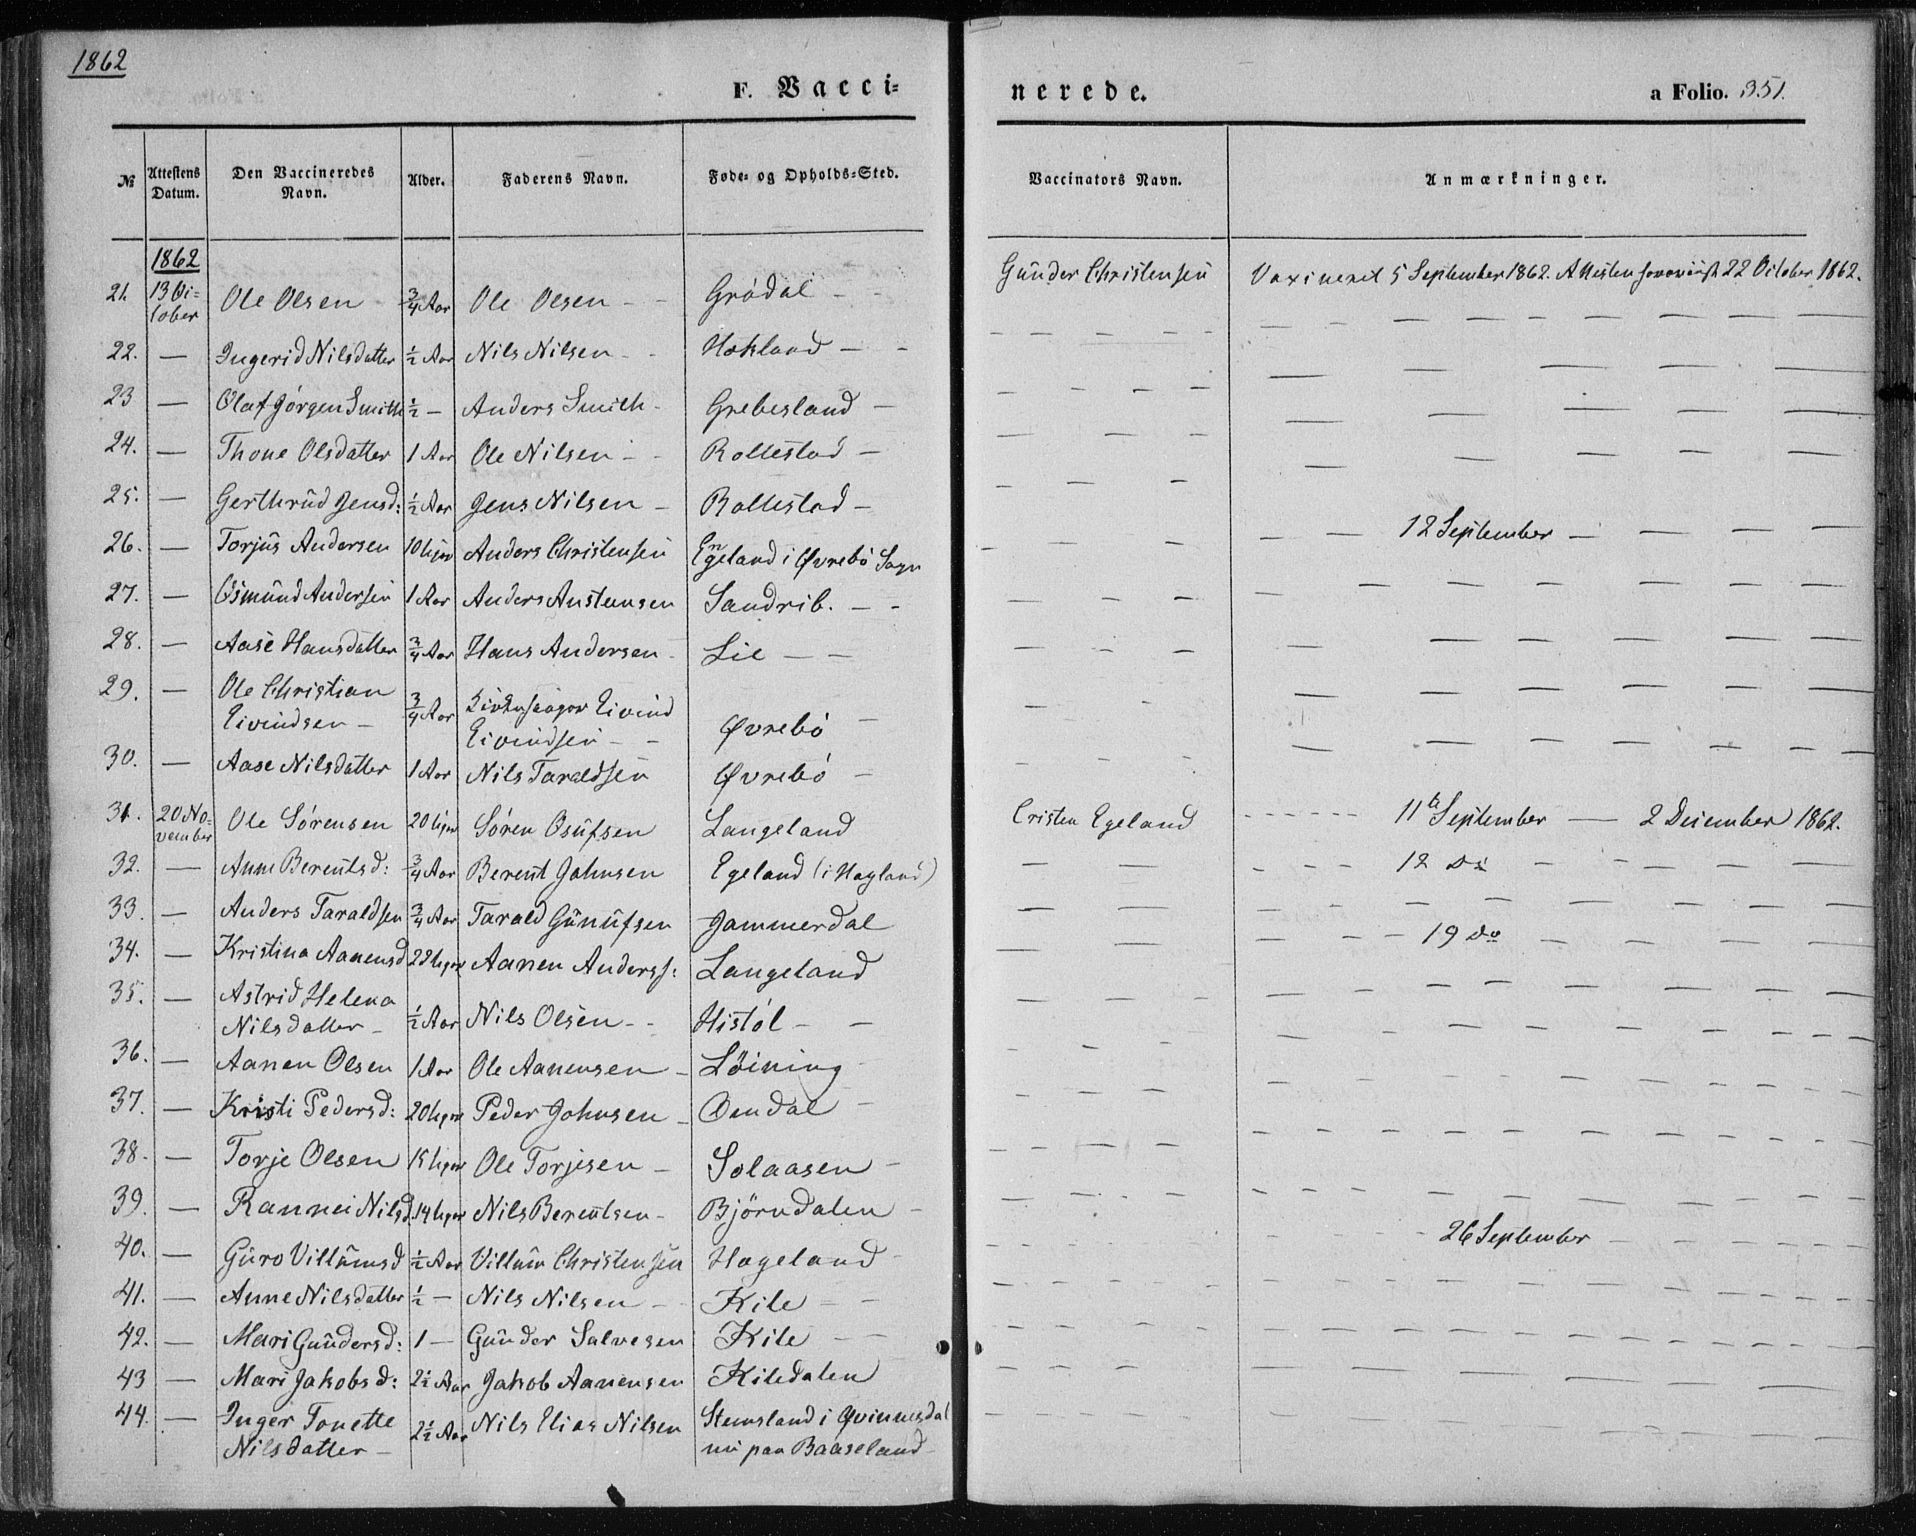 1862
F. Vacci=
nerede.
a Folio. 351.
№ Attestens Datum. Den Vaccineredes Navn. Alder. Faderens Navn. Føde- og Opholds-Sted. Vaccinators Navn. Anmærkninger.
1862
21. 13 Oc=tober Ole Olsen ¾ Aar Ole Olsen - - Grødal - - Gunder Christensen Vaxineret 5 September 1862. Attesten 22 October 1862.
22. — Ingerid Nilsdatter ½ Aar Nils Nilsen - - Hokland - -
23 — Olaf Jørgen Smith ½ — Anders Smith - Grebesland —
24. — Thone Olsdatter 1 Aar Ole Nilsen - - Rollestad —
25. — Gerthrud Jensd: ½ Aar Jens Nilsen - Rollestad —
26. — Torjus Andersen 10 Uger Anders Christensen Egeland i Øvrebø Sogn - - 12 September — — — —
27. — Osmund Andersen 1 Aar Anders Austensen Sandrib. - -
28. — Aase Hansdatter ¾ Aar Hans Andersen - Lie — —
29. — Ole Christian
Eivindsen — ¾ Aar Kirkesanger Eivind
Eivindsen - - Øvrebø —
30. — Aase Nilsdatter 1 Aar Nils Taraldsen Øvrebø —
31. 20 No=vember Ole Sörensen 20 Uger Sören Osufsen Langeland Cristen Egeland - - - - - - 11te September — 2 December 1862.
32. — Anne Berentsd: ¾ Aar Berent Johnsen Egeland (i Hægland) — — - - - - 12 Do - - - - -
33. — Anders Taraldsen ¾ Aar Tarald Gunufsen Jammerdal
34. — Kristina Aanensd 22 Uger Aanen Anderss: Langeland — — - - - - 19 Do - - - - -
35. — Astrid Helena
Nilsdatter - ½ Aar Nils Olsen - - Histöl — —
36. — Aanen Olsen 1 Aar Ole Aanensen - Löining
37. — Kristi Pedersd: 20 Uger Peder Johnsen - Omdal —
38. — Torje Olsen 15 Uger Ole Torjesen - Solaasen -
39. — Rannei Nilsd. 14 Uger Nils Berentsen - Björndalen -
40. — Guro Villumsd ½ Aar Villum Christensen Hageland - - - - - 26 September — — — —
41. — Anne Nilsdatter ½ — Nils Nilsen - - Kile — —
42. — Mari Gundersd: 1 — Gunder Salvesen Kile — —
43 — Mari Jakobsd: 2½ Aar Jakob Aanensen Kiledalen
44. — Inger Tonette
Nilsdatter — 2½ Aar Nils Elias Nilsen Stemsland i Qvinnesdal
nu paa Baaseland